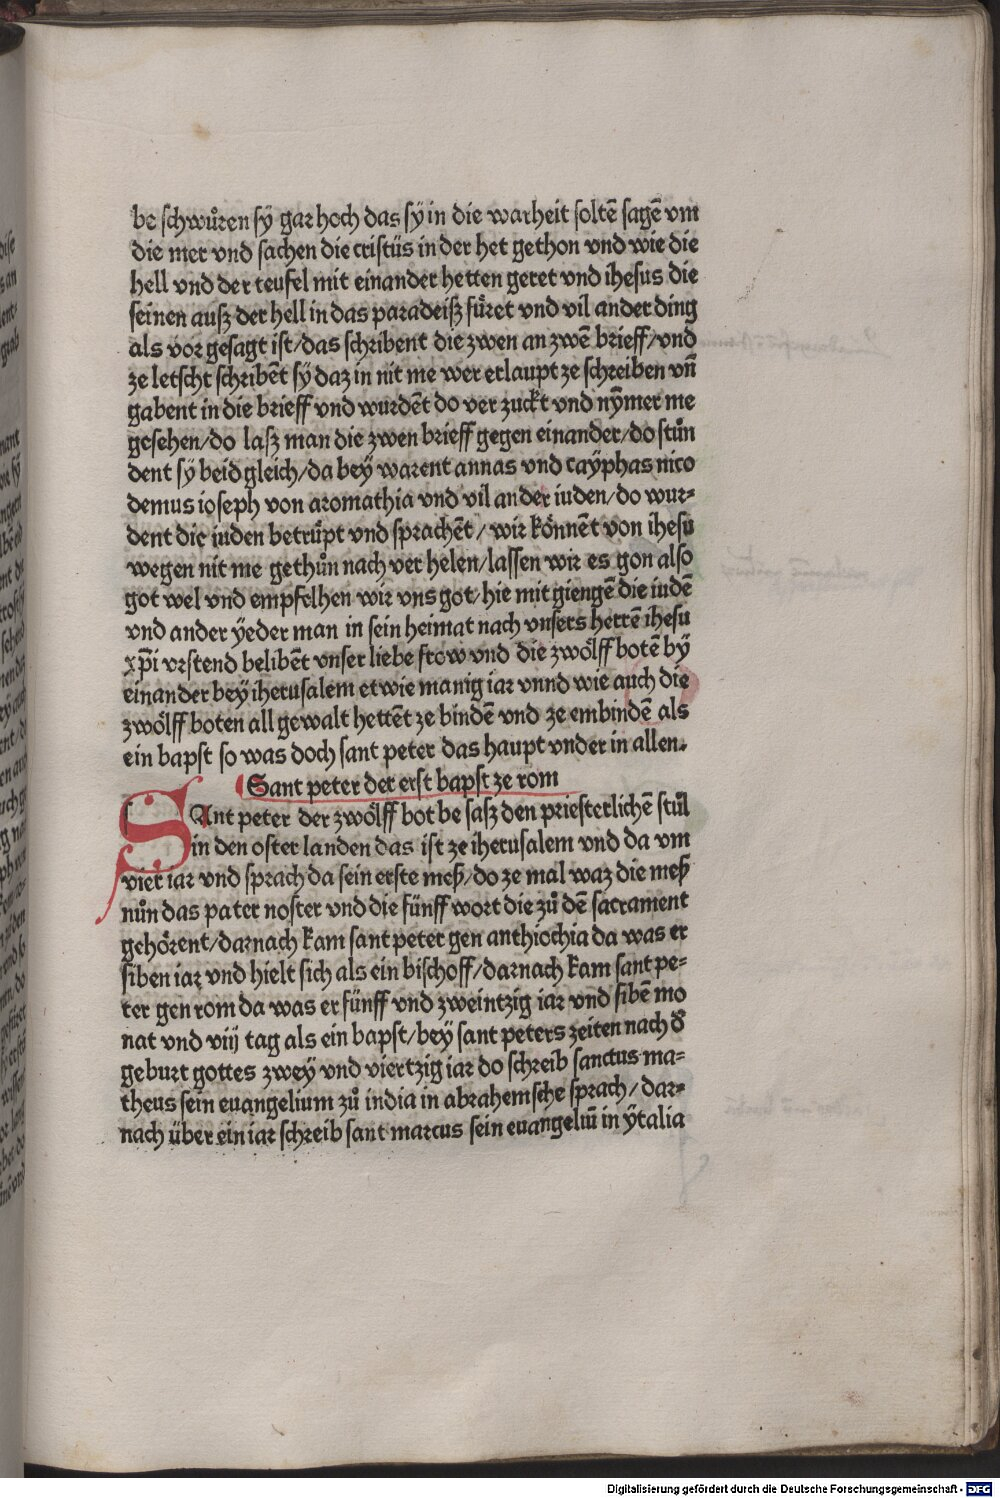 be ſchwuͦren ſÿ gar hoch das ſÿ in die warheit ſoltē ſagē vm
die mer vnd ſachen die criſtüs in der het gethon vnd wie die
hell vnd der teufel mit einander hetten geret vnd iheſus die
ſeinen auſz der hell in das paradeiſz fuͤret vnd vil ander ding
als vor geſagt iſt/das ſchribent die zwen an zwē brieff/vnd
ze letſcht ſchribēt ſÿ daz in nit me wer erlaupt ze ſchreiben vn̄
gabent in die brieff vnd wurdēt do ver zuckt vnd nÿmer me
geſehen/do laſz man die zwen brieff gegen einander/do ſtuͦn
dent ſÿ beid gleich/da beÿ warent annas vnd caÿphas nico
demus ioſeph von aromathia vnd vil ander iuden/do wur⸗
dent die iuden betruͤpt vnd ſprachēt/ wir koͤnnēt von iheſu
wegen nit me gethuͦn nach ver helen/laſſen wir es gon alſo
got wel vnd empfelhen wir vns got/hie mit giengē die iudē
vnd ander ÿeder man in ſein heimat nach vnſers herrē iheſu
xp̄i vrſtend belibēt vnſer liebe frow vnd die zwoͤlff botē bÿ
einander beÿ iheruſalem etwie manig iar vnnd wie auch die
zwoͤlff boten all gewalt hettēt ze bindē vnd ze embindē als
ein bapſt ſo was doch ſant peter das haupt vnder in allen.
Sant peter der erſt bapſt ze rom
SAnt peter der zwoͤlff bot be ſaſz den prieſterlichē ſtuͦl
in den oſter landen das iſt ze iheruſalem vnd da vm
vier iar vnd ſprach da ſein erſte meſz/do ze mal waz die meſz
nuͦn das pater noſter vnd die fünff wort die zuͦ dē ſacrament
gehoͤrent/darnach kam ſant peter gen anthiochia da was er
ſiben iar vnd hielt ſich als ein biſchoff/darnach kam ſant pe⸗
ter gen rom da was er fünff vnd zweintzig iar vnd ſibē mo
nat vnd viij tag als ein bapſt/beÿ ſant peters zeiten nach d̕
geburt gottes zweÿ vnd viertzig iar do ſchreib ſanctus ma⸗
theus ſein euangelium zuͦ india in abrahemſche ſprach/dar⸗
nach über ein iar ſchreib ſant marcus ſein euangeliū in ÿtalia
Digitalisierung gefördert durch die Deutsche Forschungsgemeinschaft - DFG